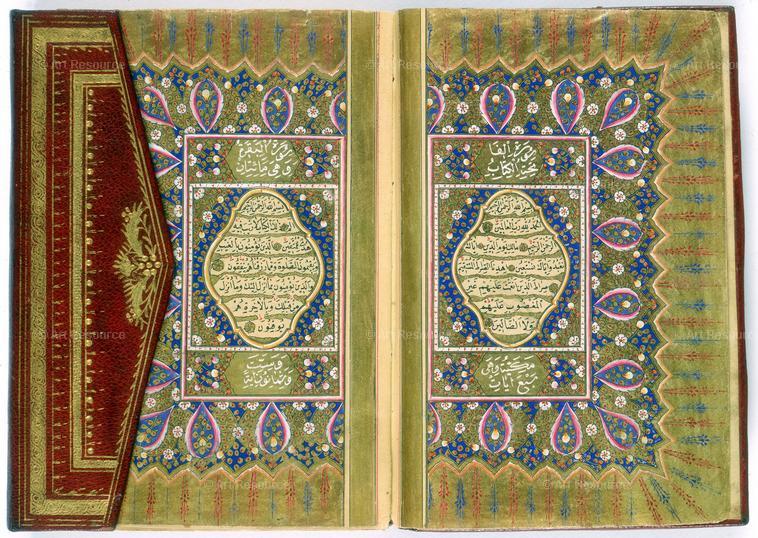 سورة الفا
تحة الكتاب
بسم الله الرحمن الرحيم
الحمد لله رب العالمين
الرحمن الرحيم مالك يوم الدين اياك
نعبد واياك نستعين اهدنا الصراط المستقيم
صراط الذين انعمت عليهم غير
المغضوب عليهم
ولا الضالين
مكية وهي
سبع آيات
سورة البقرة
وهي مائتان
بسم الله الرحمن الرحيم
الم ذلك الكتاب لا ريب فيه
هدى للمتقين الذين يؤمنون بالغيب
ويقيمون الصلوة ومما رزقناهم ينفقون
والذين يؤمنون بما انزل اليك وما انزل
من قبلك وبالاخرة هم
يوقنون
وست
وثمانون آية
© Art Resource